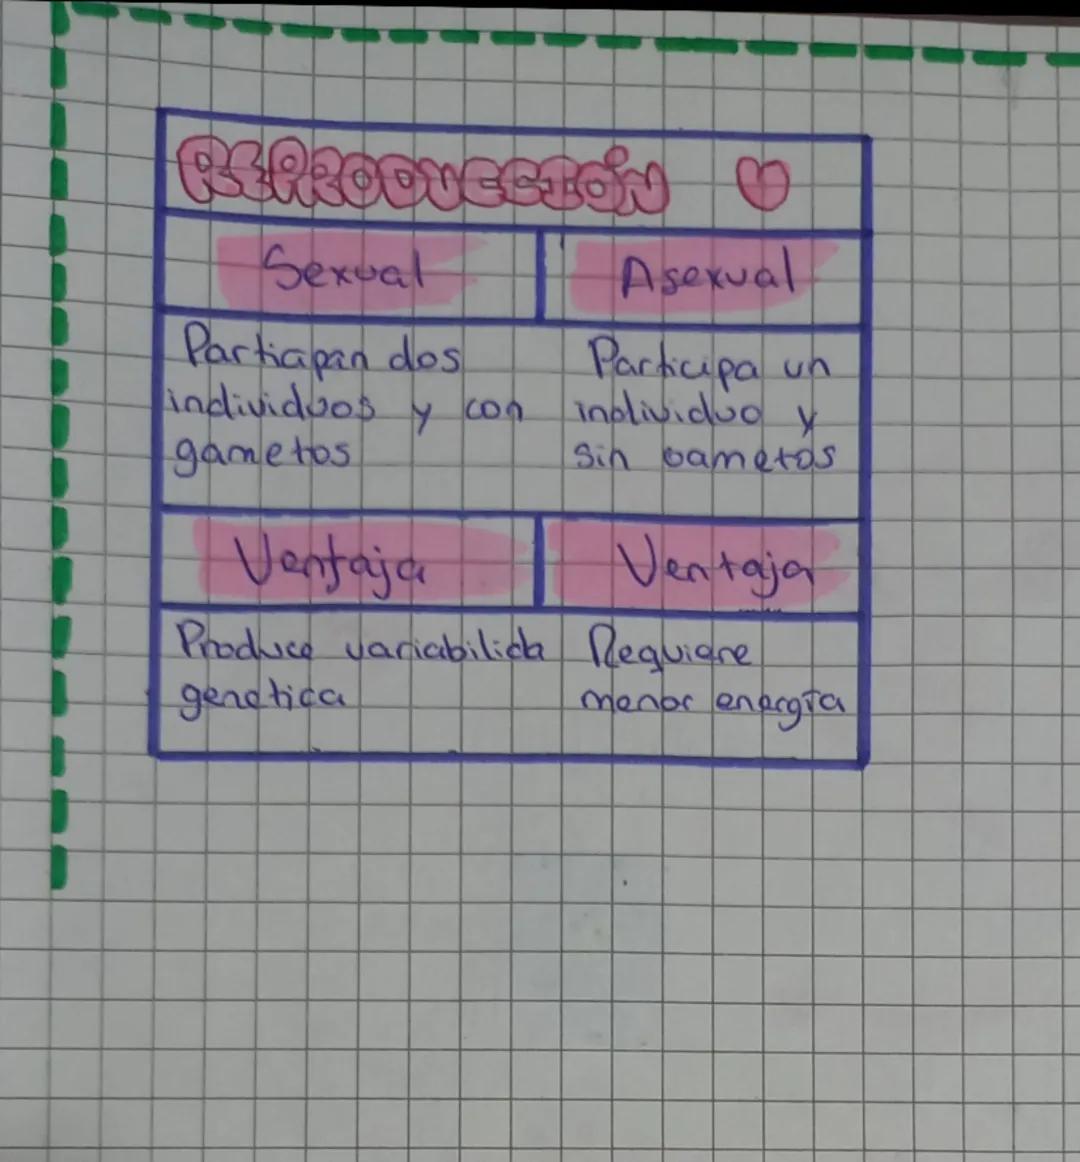 REPRODUCCIÓN
Sexual Asexual
Participan dos
individuos y con
gametos
Participa un
individuo y
sin gametos
Ventaja Ventaja
Produce variabilida
genetica
Requiere
menor energía